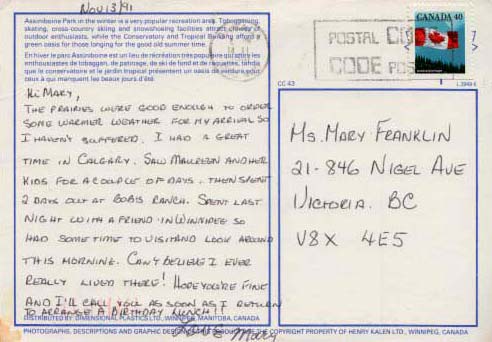 Nov 13/91
Assiniboine Park in the winter is a very popular recreation area. Tobogganing,
skating, cross-country skiing and snowshoeing facilities attract
outdoor enthusiasts, while the Conservatory and Tropical Building afford a
green oasis for those longing for the good old summer time.
En hiver le parc Assiniboine est un lieu de récréation très populaire qui attire les
enthousiastes de tobaggan, de patinage, de ski de fond et de raquettes, tandis
que le conservatoire et le jardin tropical présentent un oasis de verdure pour
ceux à qui manquent les beaux jours d'été.
POSTAL CODE
CODE POSTAL
CANADA 40
CC 43
L 3949 E
Hi Mary,
The prairies were good enough to order
some warmer weather for my arrival so
I haven't suffered. I had a great
time in Calgary. Saw Maureen and her
kids for a couple of days. Then spent
2 days out at Bob's ranch. Spent last
night with a friend in Winnipeg so
had some time to visit and look around
this morning. Can't believe I ever
really lived there! Hope you're fine
and I'll call you as soon as I return
to arrange a birthday lunch!!
Love Mary
Ms. Mary Franklin
21-846 Nigel Ave
Victoria. BC
V8X 4E5
DISTRIBUTED BY DIMENSIONAL PLASTICS LTD., WINNIPEG, MANITOBA, CANADA
PHOTOGRAPHS, DESCRIPTIONS AND GRAPHIC DESIGN THE COPYRIGHT PROPERTY OF HENRY KALEN LTD., WINNIPEG, CANADA